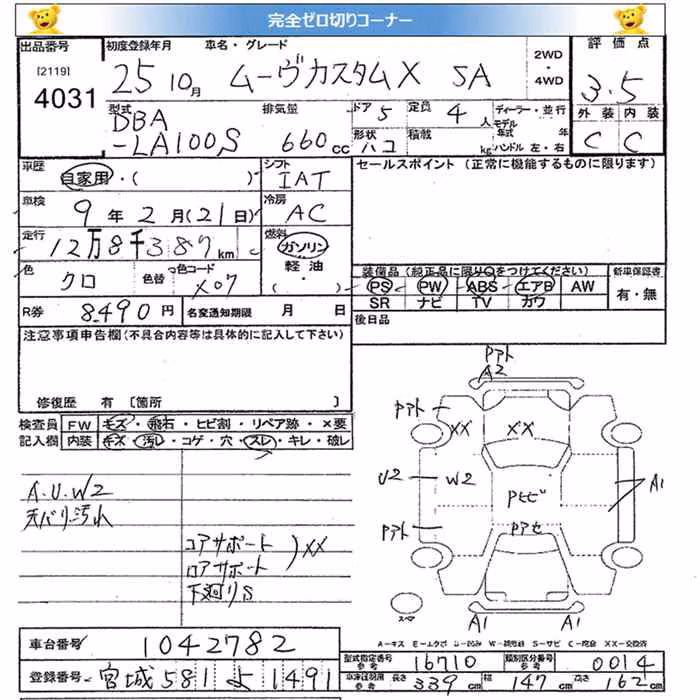 完全ゼロ切りコーナー
出品番号 初度登録年月 車名・グレード 2WD・4WD 評価点
[2119] 4031 25 10月 ムーヴカスタムX SA 3.5
型式 排気量 ドア 5 定員 4人 ディーラー・並行 外装 内装
DBA-LA100S 660cc 形状 ハコ 積載 kg モデル年式 年 ハンドル 左・右 C C
車歴 自家用・( )・ シフト IAT セールスポイント (正常に機能するものに限ります)
車検 9年2月(21日) 冷房 AC
走行 12万8千387km 燃料 ガソリン・軽油・( )
色 クロ 色替 カラーコード X07
装備品 (純正品に限り○をつけてください) 新車保証書
PS PW ABS エアB AW 有・無
SR ナビ TV カワ
R券 8490円 名変通知期限 月 日 後日品
注意事項申告欄(不具合内容等は具体的に記入して下さい)
修復歴 有 〔箇所 〕
検査員 FW キズ・飛石・ヒビ割・リペア跡・×要
記入欄 内装 キズ・汚レ・コゲ・穴・スレ・キレ・破レ
A.U.W2
天バリ汚れ
コアサポート
ロアサポート )XX
下廻りS
Pアト
A2
Pアト
XX XX
U2 W2 Pヒビ A1
Pアト Pアセ
スペア A1 A1
A-キズ E-エクボ U-凹み W-補修跡 S-サビ C-腐食 XX-交換済
車台番号 1042782
型式指定番号 参考 16710 類別区分番号 参考 0014
登録番号 宮城581 よ 1491
車庫証明用 参考 長さ 339cm 幅 147cm 高さ 162cm